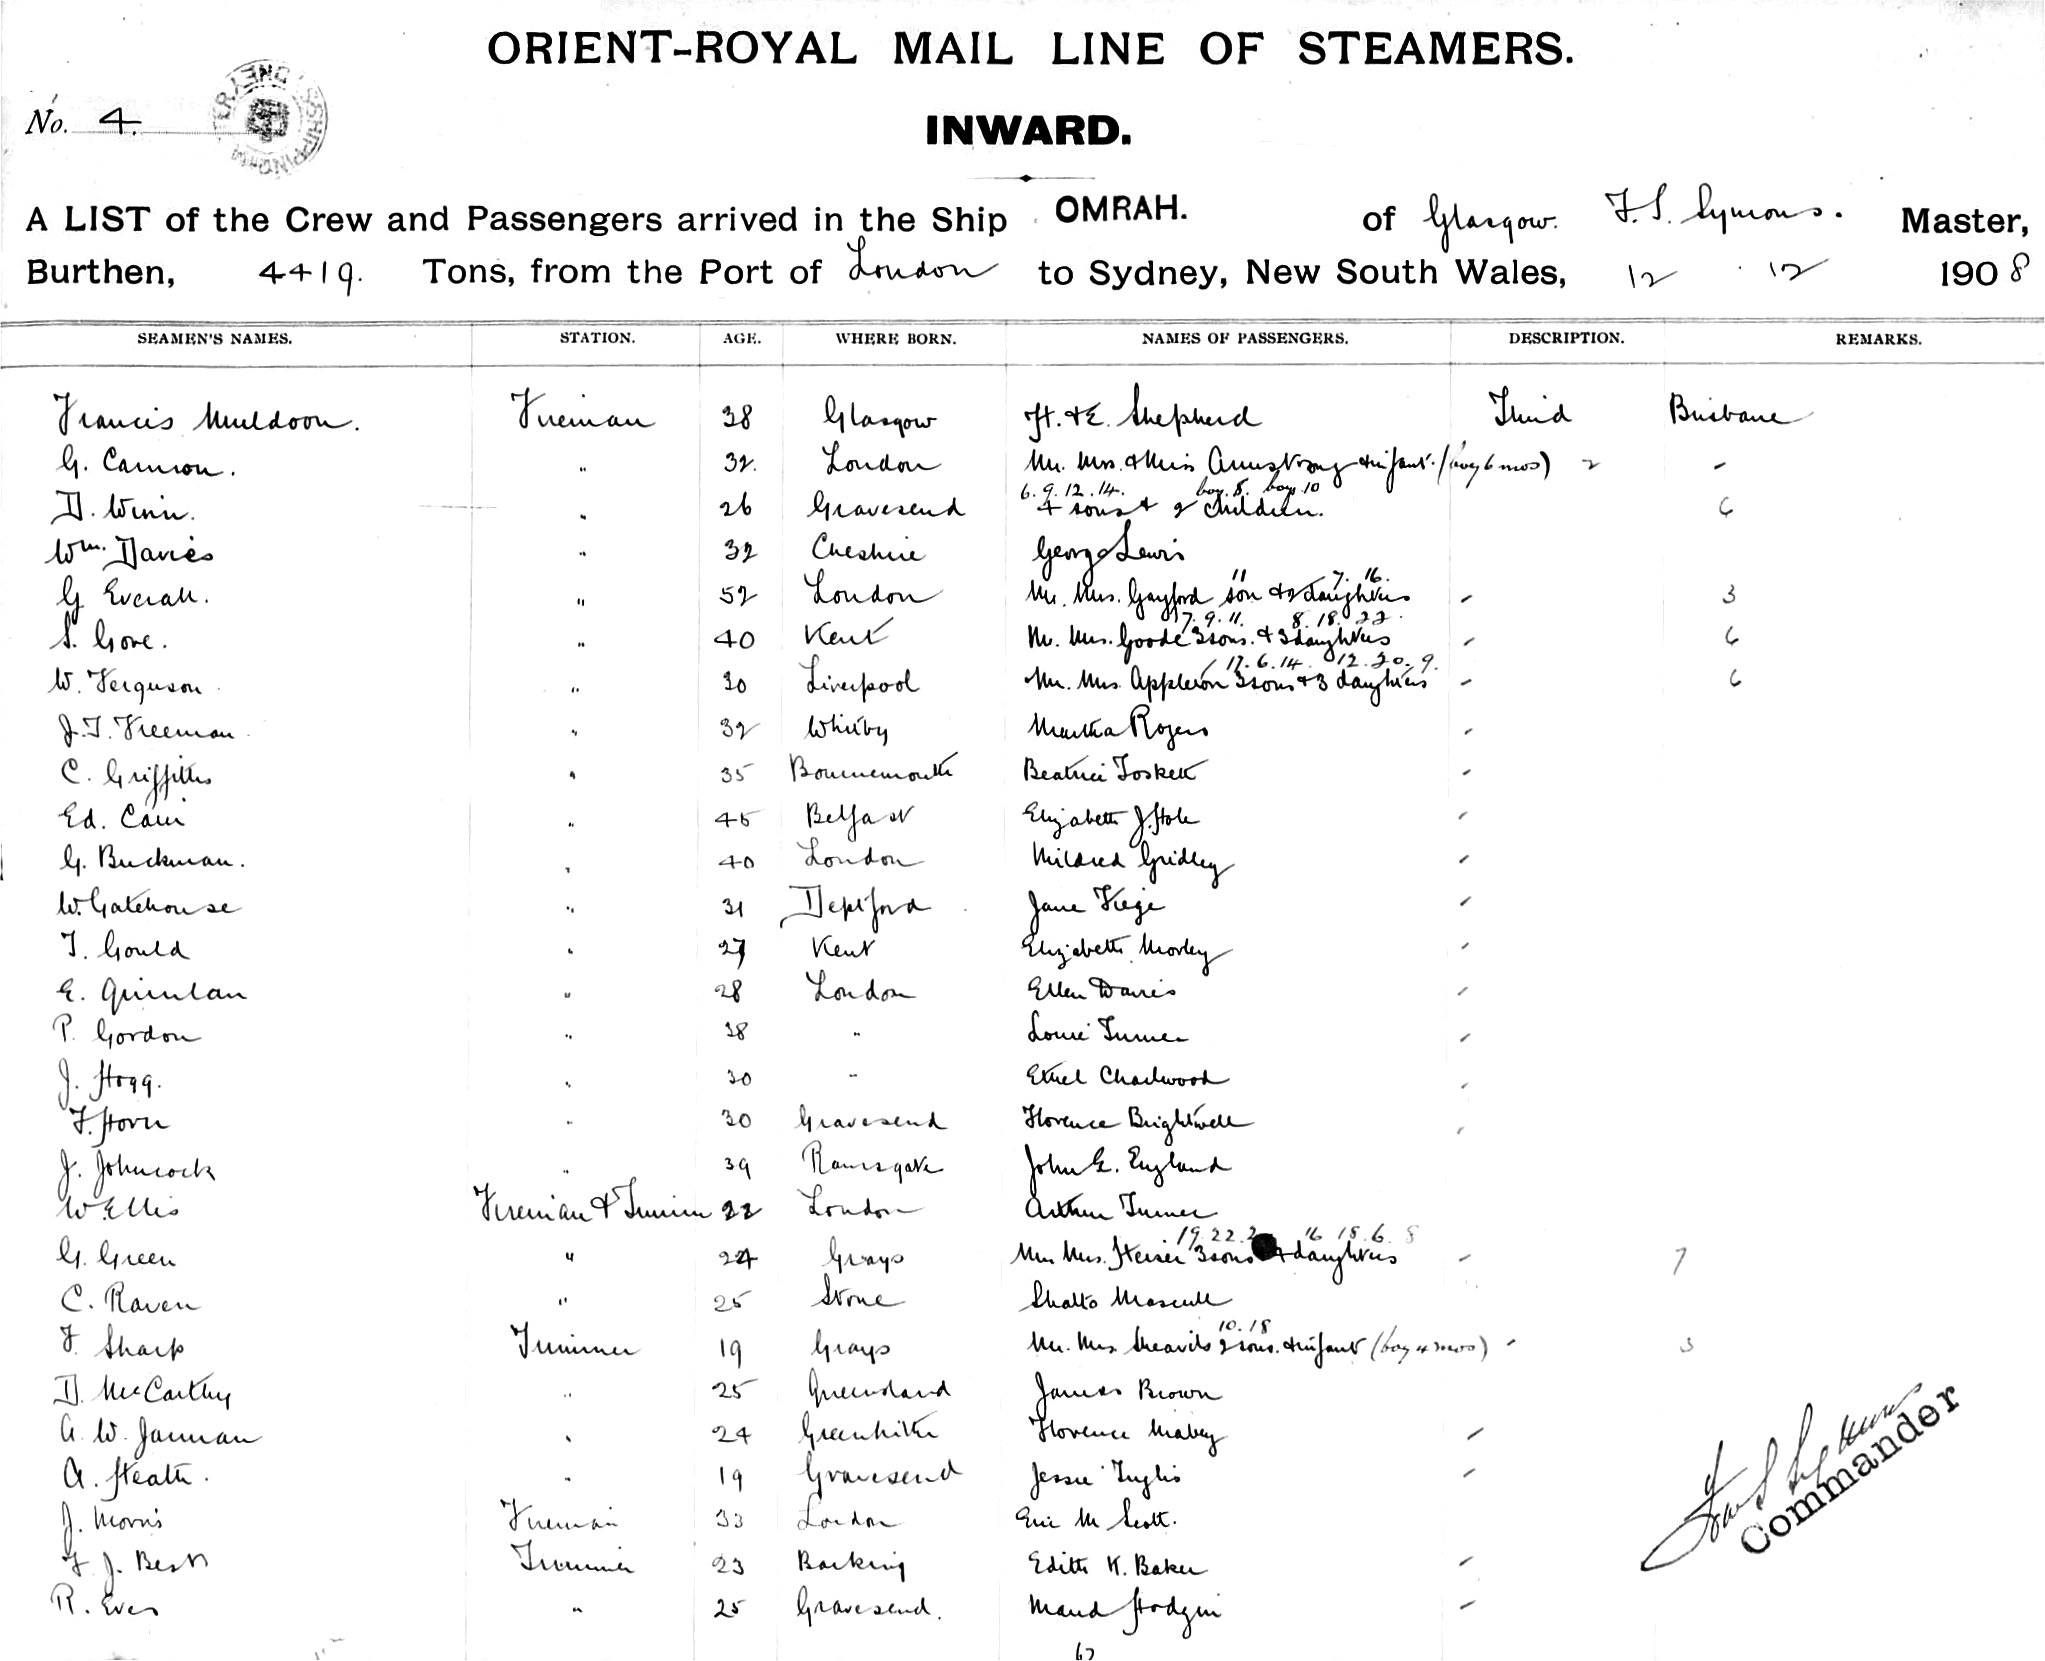 ORIENT-ROYAL MAIL LINE OF STEAMERS.
No. 4.
INWARD.
A LIST of the Crew and Passengers arrived in the Ship OMRAH. of Glasgow. F. S. Symons. Master,
Burthen, 4419. Tons, from the Port of London to Sydney, New South Wales, 12 12 1908
SEAMEN'S NAMES. STATION. AGE. WHERE BORN. NAMES OF PASSENGERS. DESCRIPTION. REMARKS.
Francis Muldoon. Fireman 38 Glasgow H. & E. Shepherd Third Brisbane
G. Cannon. " 32. London Mr. Mrs. & Miss Armstrong & infant. (boy 6 mos) 2
6. 9. 12. 14. boy. 8. boy. 10
D. Winn. " 26 Gravesend 4 sons & 2 children. 6
Wm. Davies " 32 Cheshire George Lewis
11 7. 16.
G Everall. " 52 London Mr. Mrs. Gayford son & 2 daughters 3
7. 9. 11. 8. 18. 22.
S. Gore. " 40 Kent Mr. Mrs. Goode 3 sons. & 3 daughters 6
17. 6. 14. 12. 20. 9.
W. Ferguson " 30 Liverpool Mr. Mrs. Appleton 3 sons & 3 daughters 6
J. T. Freeman " 32 Whitby Martha Rogers
C. Griffiths " 35 Bournemouth Beatrice Foskett
Ed. Cain " 45 Belfast Elizabeth J. Hole
G. Buckman. " 40 London Mildred Gridley
W. Gatehouse " 31 Deptford Jane
T. Gould " 27 Kent Elizabeth Morley
E. Quinlan " 28 London Ellen Davies
P. Gordon " 38 " Louie Turner
J. Hogg. " 30 " Ethel Charlwood
F. Horn " 30 Gravesend Florence Brightwell
J. Johncock " 39 Ramsgate John E. England
W. Ellis Fireman & Trimmer 22 London Arthur Turner
19. 22. 2 16 18. 6. 8
G. Green " 24 Grays Mr Mrs. Heiser 3 sons 4 daughters 7
C. Raven " 25 Stone Sholto
10. 18
F. Sharp Trimmer 19 Grays Mr. Mrs 2 sons. & infant (boy 4 mos) 3
D. McCarthy " 25 Queensland James Brown
A. W. Jarman " 24 Greenhithe Florence Mabey
A. Heath. " 19 Gravesend Jessie Inglis
J. Morris Fireman 33 London Eric M Scott.
F. J. Best Trimmer 23 Barking Edith K. Baker
R. Eves " 25 Gravesend. Maud Hodgin
Commander